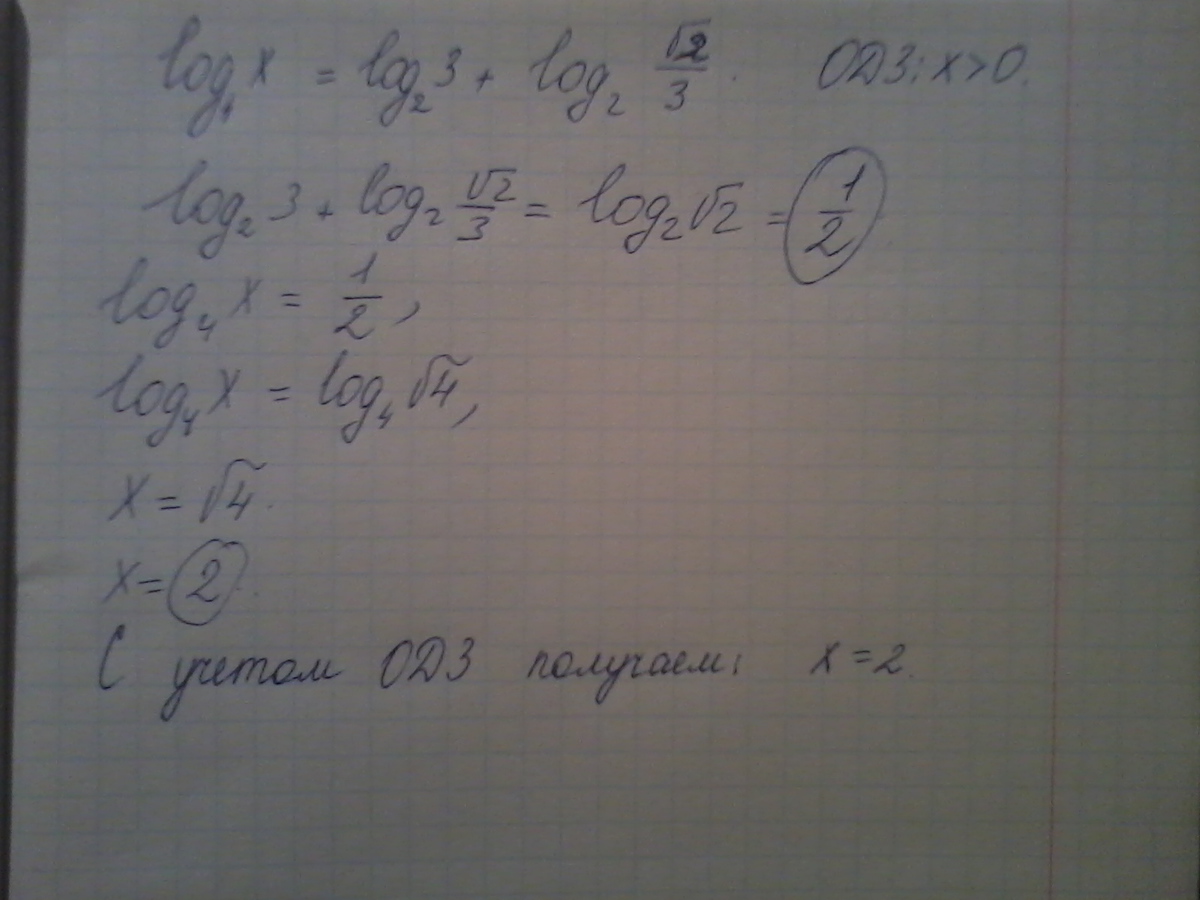 log₄ x = log₂ 3 + log₂ √2/3. ОДЗ: x > 0.
log₂ 3 + log₂ √2/3 = log₂ √2 = 1/2
log₄ x = 1/2,
log₄ x = log₄ √4,
x = √4.
x = 2.
С учетом ОДЗ получаем: x = 2.